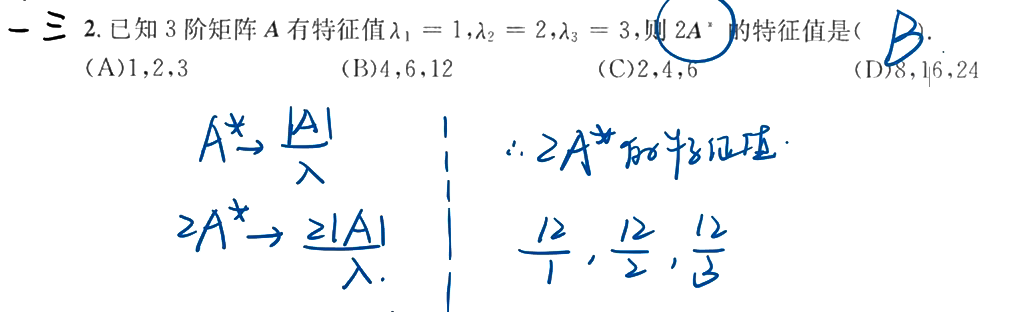 一三 2. 已知 3 阶矩阵 A 有特征值 λ₁ = 1,λ₂ = 2,λ₃ = 3,则 2A* 的特征值是( B ).
(A)1,2,3 (B)4,6,12 (C)2,4,6 (D)8,16,24
A* → |A|/λ
∴ 2A* 的特征值.
2A* → 2|A|/λ.
12/1 , 12/2 , 12/3